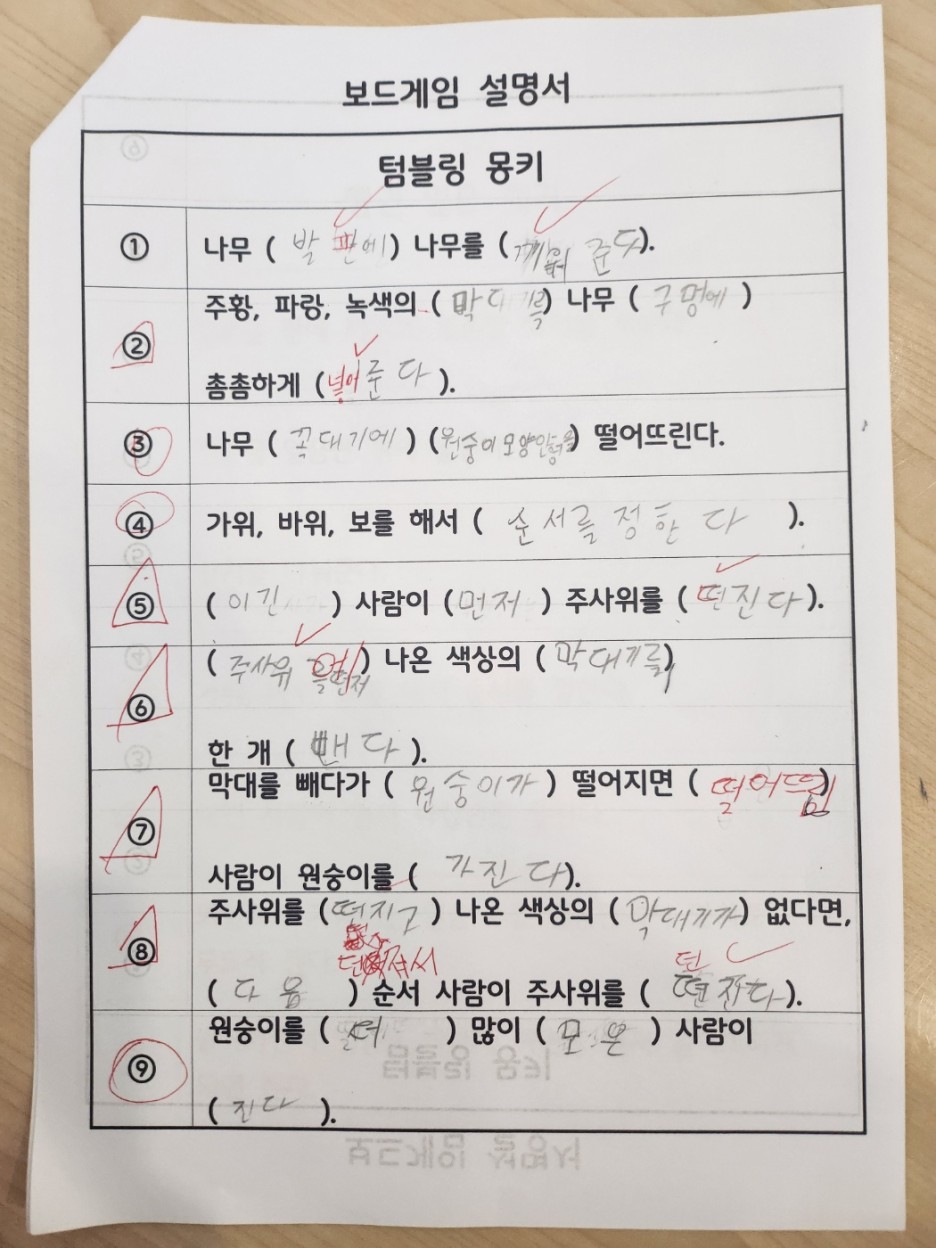 보드게임 설명서
텀블링 몽키
① 나무 ( 발판에 ) 나무를 ( 준다).
② 주황, 파랑, 녹색의 ( 막대기를) 나무 ( 구멍에 )
촘촘하게 (넣어준다 ).
③ 나무 ( 꼭대기에 ) (원숭이모양 ) 떨어뜨린다.
④ 가위, 바위, 보를 해서 ( 순서를 정한다 ).
⑤ ( 이긴 ) 사람이 (먼저 ) 주사위를 ( 던진다).
⑥ ( 주사위 ) 나온 색상의 ( 막대기를)
한 개 ( 뺀다 ).
⑦ 막대를 빼다가 ( 원숭이가 ) 떨어지면 ( 떨어뜨림)
사람이 원숭이를 ( 가진다).
⑧ 주사위를 (떤지고 ) 나온 색상의 ( 막대기가) 없다면,
던져서 던
( 다음 ) 순서 사람이 주사위를 ( 떤진다).
⑨ 원숭이를 ( 더 ) 많이 ( 모은 ) 사람이
( 진다 ).